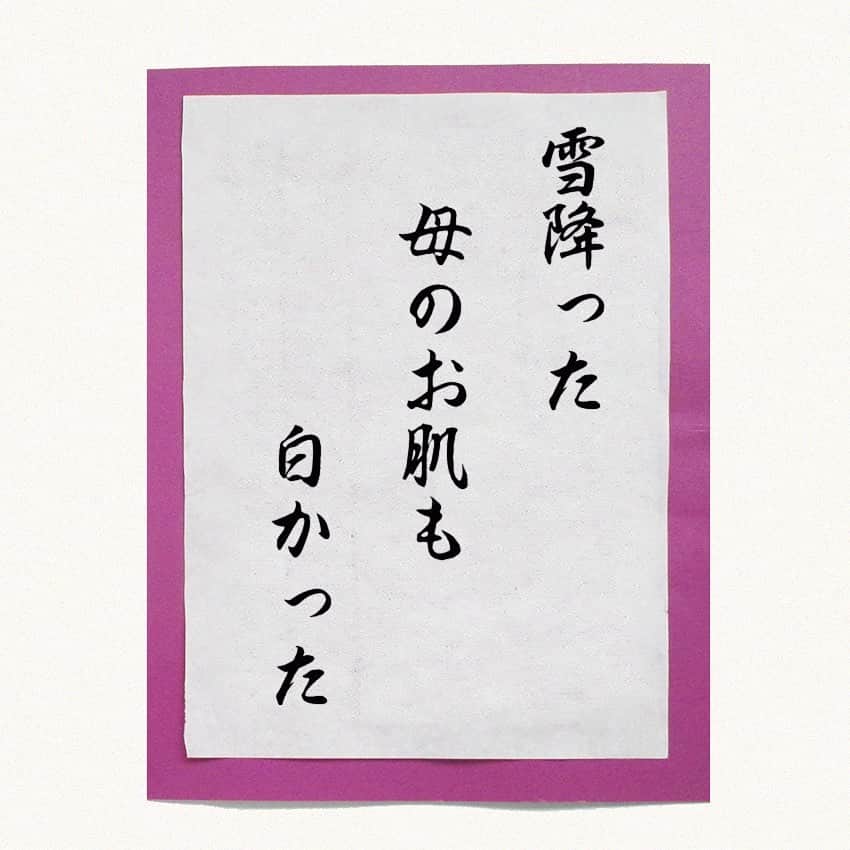 雪降った
母のお肌も
白かった